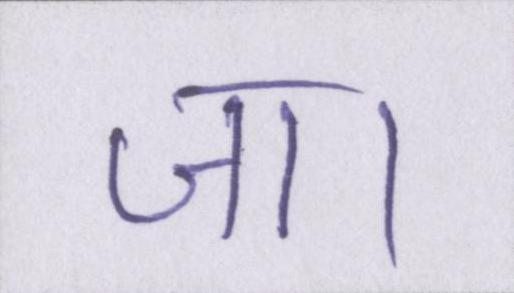 जा।